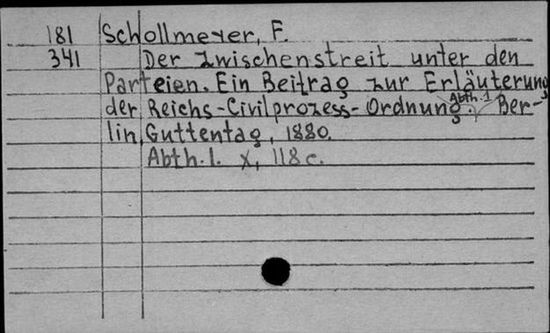 181 Schollmeyer, F.
341 Der Zwischenstreit unter den
Parteien. Ein Beitrag zur Erläuterung
der Reichs-Civilprozess-Ordnung. Abth. 1 Ber-
lin, Guttentag, 1880.
Abth. 1. X, 118 c.